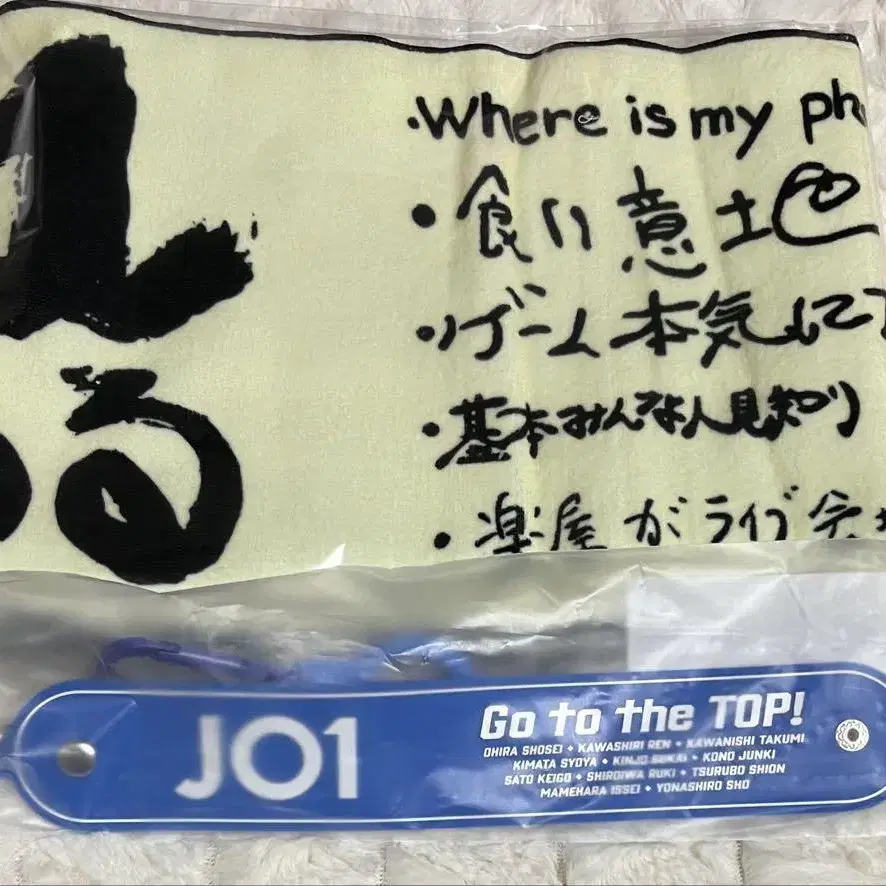 る
·Where is my ph
・食い意地
・ゲーム本気に
・基本みんな人見知り
・楽屋がライブ会
JO1
Go to the TOP!
OHIRA SHOSEI • KAWASHIRI REN • KAWANISHI TAKUMI
KIMATA SYOYA • KINJO SUKAI • KONO JUNKI
SATO KEIGO • SHIROIWA RUKI • TSURUBO SHION
MAMEHARA ISSEI • YONASHIRO SHO